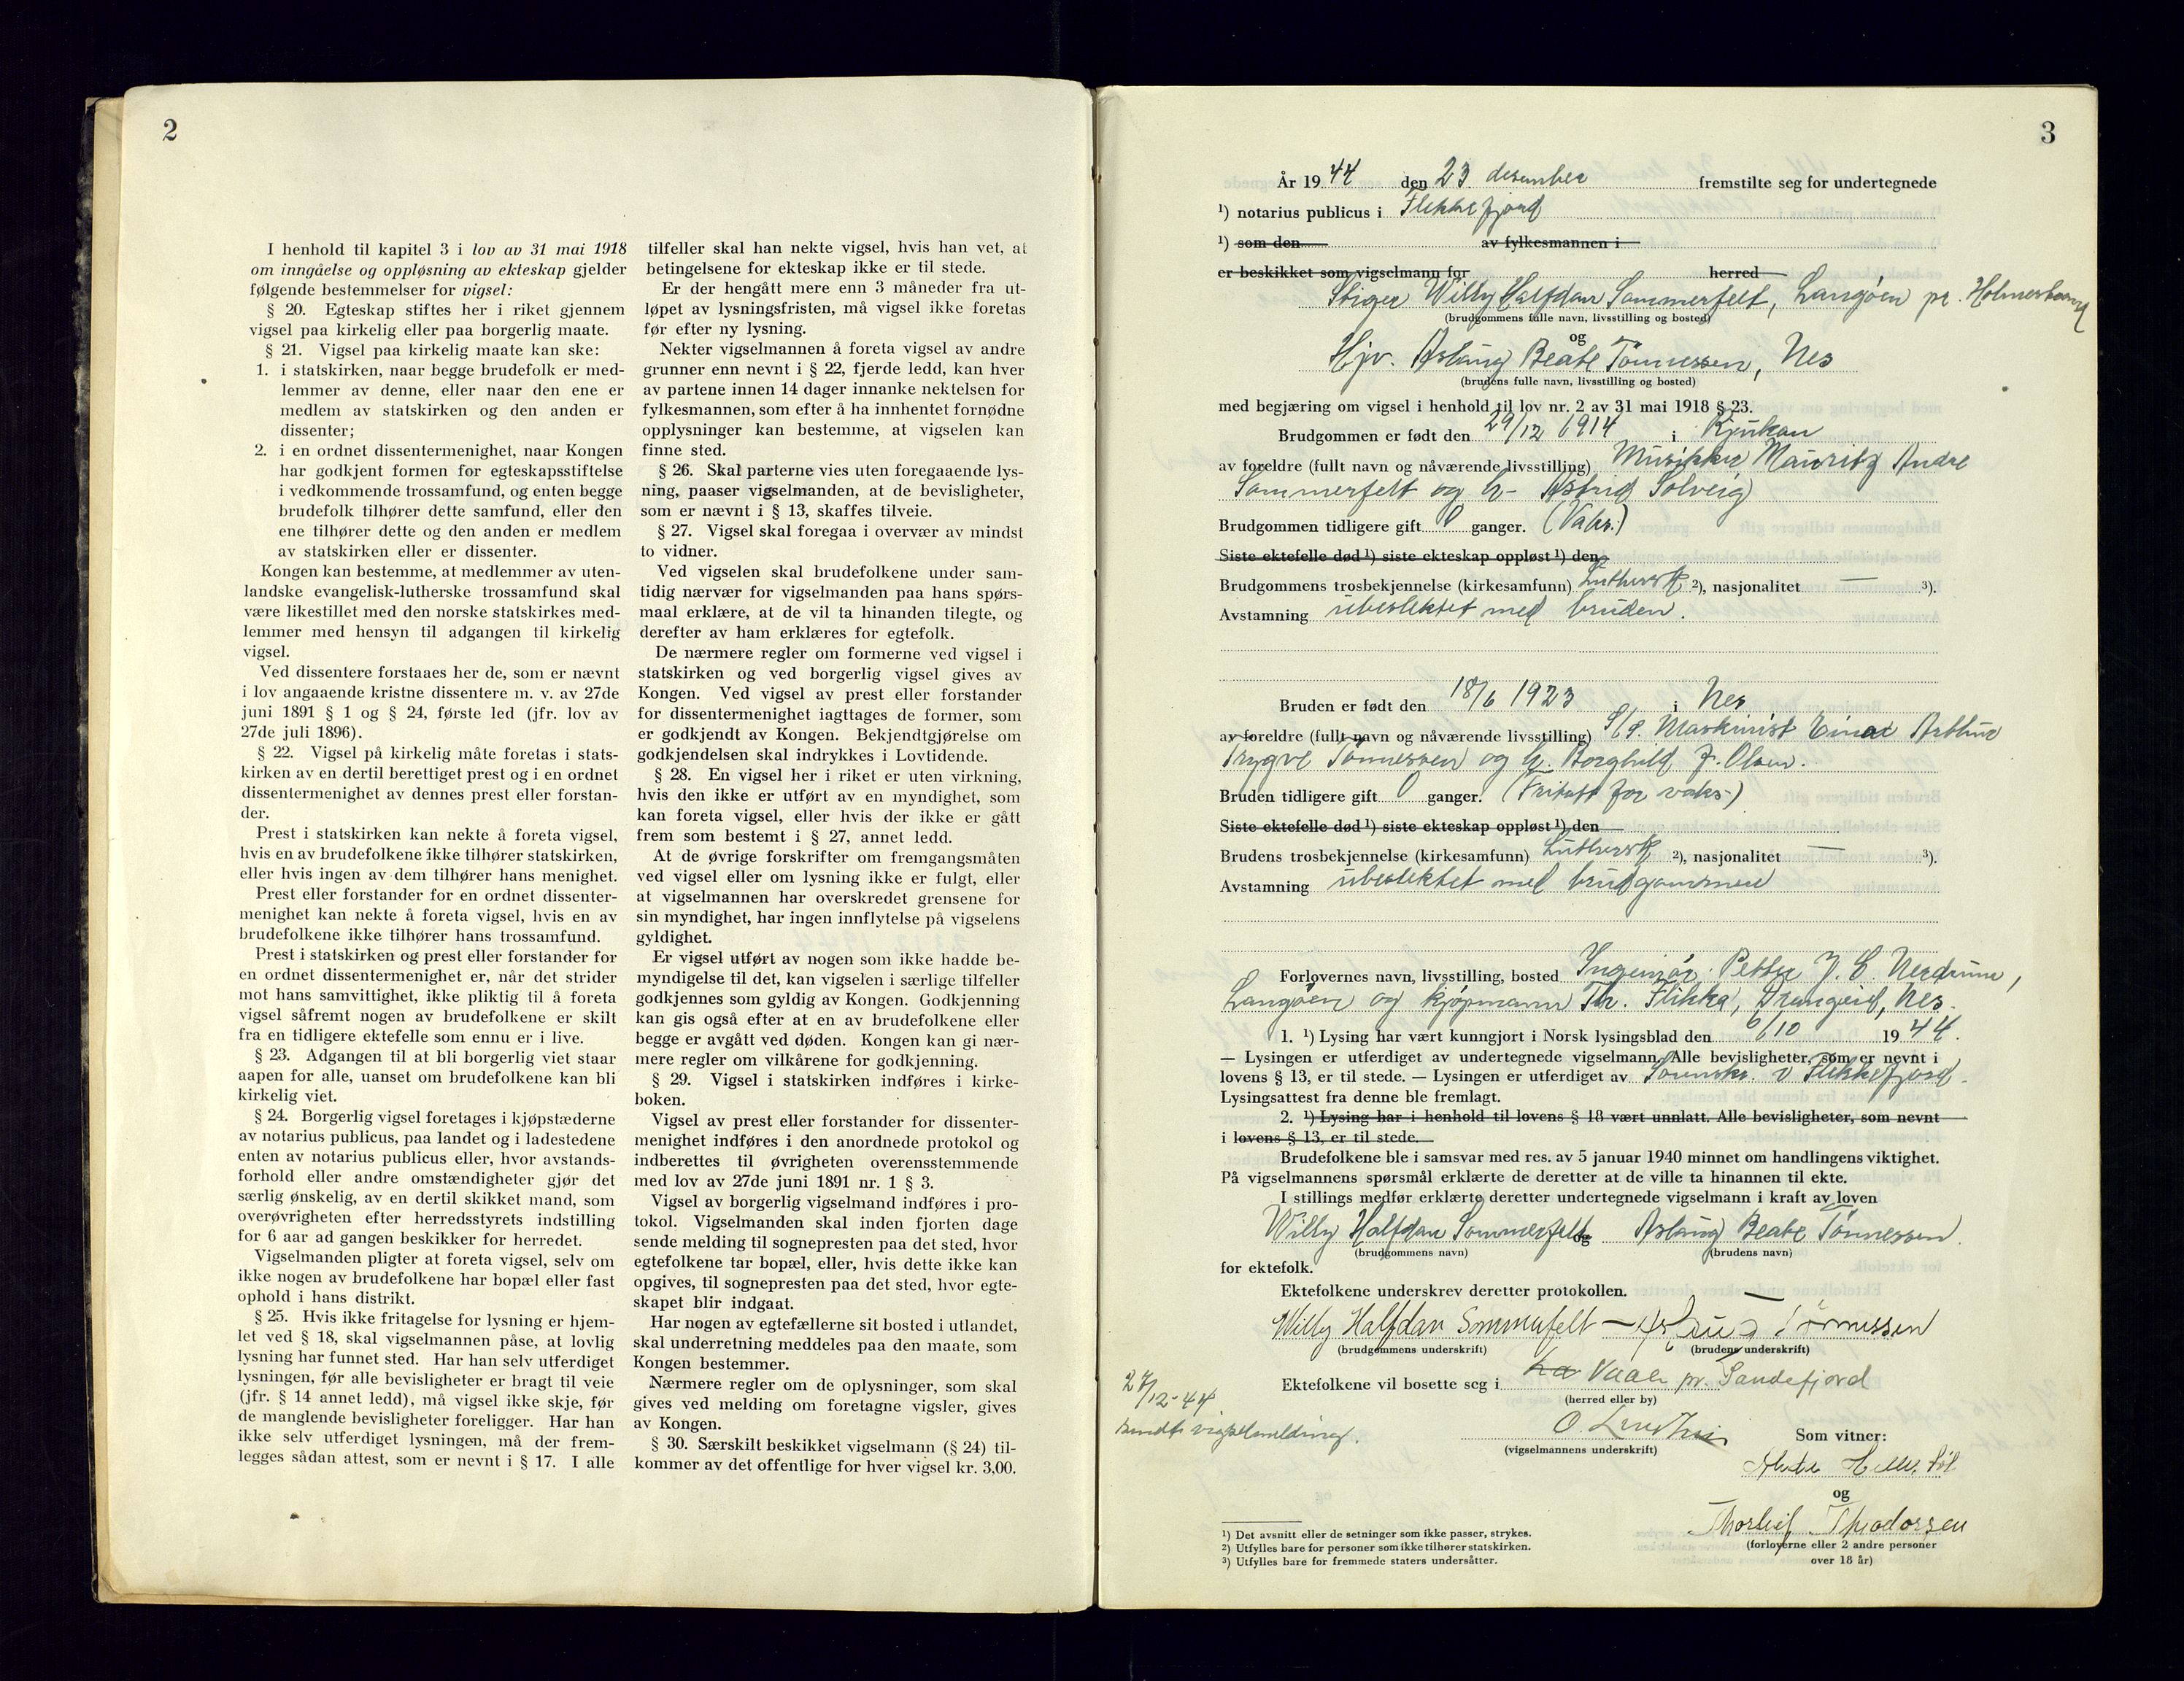 2
I henhold til kapitel 3 i lov av 31 mai 1918
om inngåelse og oppløsning av ekteskap gjelder
følgende bestemmelser for vigsel:
§ 20. Egteskap stiftes her i riket gjennem
vigsel paa kirkelig eller paa borgerlig maate.
§ 21. Vigsel paa kirkelig maate kan ske:
1. i statskirken, naar begge brudefolk er med-
lemmer av denne, eller naar den ene er
medlem av statskirken og den anden er
dissenter;
2. i en ordnet dissentermenighet, naar Kongen
har godkjent formen for egteskapsstiftelse
i vedkommende trossamfund, og enten begge
brudefolk tilhører dette samfund, eller den
ene tilhører dette og den anden er medlem
av statskirken eller er dissenter.
Kongen kan bestemme, at medlemmer av uten-
landske evangelisk-lutherske trossamfund skal
være likestillet med den norske statskirkes med-
lemmer med hensyn til adgangen til kirkelig
vigsel.
Ved dissentere forstaaes her de, som er nævnt
i lov angaaende kristne dissentere m. v. av 27de
juni 1891 § 1 og § 24, første led (jfr. lov av
27de juli 1896).
§ 22. Vigsel på kirkelig måte foretas i stats-
kirken av en dertil berettiget prest og i en ordnet
dissentermenighet av dennes prest eller forstan-
der.
Prest i statskirken kan nekte å foreta vigsel,
hvis en av brudefolkene ikke tilhører statskirken,
eller hvis ingen av dem tilhører hans menighet.
Prest eller forstander for en ordnet dissenter-
menighet kan nekte å foreta vigsel, hvis en av
brudefolkene ikke tilhører hans trossamfund.
Prest i statskirken og prest eller forstander for
en ordnet dissentermenighet er, når det strider
mot hans samvittighet, ikke pliktig til å foreta
vigsel såfremt nogen av brudefolkene er skilt
fra en tidligere ektefelle som ennu er i live.
§ 23. Adgangen til at bli borgerlig viet staar
aapen for alle, uanset om brudefolkene kan bli
kirkelig viet.
§ 24. Borgerlig vigsel foretages i kjøpstæderne
av notarius publicus, paa landet og i ladestedene
enten av notarius publicus eller, hvor avstands-
forhold eller andre omstændigheter gjør det
særlig ønskelig, av en dertil skikket mand, som
overøvrigheten efter herredsstyrets indstilling
for 6 aar ad gangen beskikker for herredet.
Vigselmanden pligter at foreta vigsel, selv om
ikke nogen av brudefolkene har bopæl eller fast
ophold i hans distrikt.
§ 25. Hvis ikke fritagelse for lysning er hjem-
let ved § 18, skal vigselmannen påse, at lovlig
lysning har funnet sted. Har han selv utferdiget
lysningen, før alle bevisligheter er bragt til veie
(jfr. § 14 annet ledd), må vigsel ikke skje, før
de manglende bevisligheter foreligger. Har han
ikke selv utferdiget lysningen, må der frem-
legges sådan attest, som er nevnt i § 17. I alle
tilfeller skal han nekte vigsel, hvis han vet, at
betingelsene for ekteskap ikke er til stede.
Er der hengått mere enn 3 måneder fra ut-
løpet av lysningsfristen, må vigsel ikke foretas
før efter ny lysning.
Nekter vigselmannen å foreta vigsel av andre
grunner enn nevnt i § 22, fjerde ledd, kan hver
av partene innen 14 dager innanke nektelsen for
fylkesmannen, som efter å ha innhentet fornødne
opplysninger kan bestemme, at vigselen kan
finne sted.
§ 26. Skal parterne vies uten foregaaende lys-
ning, paaser vigselmanden, at de bevisligheter,
som er nævnt i § 13, skaffes tilveie.
§ 27. Vigsel skal foregaa i overvær av mindst
to vidner.
Ved vigselen skal brudefolkene under sam-
tidig nærvær for vigselmanden paa hans spørs-
maal erklære, at de vil ta hinanden tilegte, og
derefter av ham erklæres for egtefolk.
De nærmere regler om formerne ved vigsel i
statskirken og ved borgerlig vigsel gives av
Kongen. Ved vigsel av prest eller forstander
for dissentermenighet iagttages de former, som
er godkjendt av Kongen. Bekjendtgjørelse om
godkjendelsen skal indrykkes i Lovtidende.
§ 28. En vigsel her i riket er uten virkning,
hvis den ikke er utført av en myndighet, som
kan foreta vigsel, eller hvis der ikke er gått
frem som bestemt i § 27, annet ledd.
At de øvrige forskrifter om fremgangsmåten
ved vigsel eller om lysning ikke er fulgt, eller
at vigselmannen har overskredet grensene for
sin myndighet, har ingen innflytelse på vigselens
gyldighet.
Er vigsel utført av nogen som ikke hadde be-
myndigelse til det, kan vigselen i særlige tilfeller
godkjennes som gyldig av Kongen. Godkjenning
kan gis også efter at en av brudefolkene eller
begge er avgått ved døden. Kongen kan gi nær-
mere regler om vilkårene for godkjenning.
§ 29. Vigsel i statskirken indføres i kirke-
boken.
Vigsel av prest eller forstander for dissenter-
menighet indføres i den anordnede protokol og
indberettes til øvrigheten overensstemmende
med lov av 27de juni 1891 nr. 1 § 3.
Vigsel av borgerlig vigselmand indføres i pro-
tokol. Vigselmanden skal inden fjorten dage
sende melding til sognepresten paa det sted, hvor
egtefolkene tar bopæl, eller, hvis dette ikke kan
opgives, til sognepresten paa det sted, hvor egte-
skapet blir indgaat.
Har nogen av egtefællerne sit bosted i utlandet,
skal underretning meddeles paa den maate, som
Kongen bestemmer.
Nærmere regler om de oplysninger, som skal
gives ved melding om foretagne vigsler, gives
av Kongen.
§ 30. Særskilt beskikket vigselmann (§ 24) til-
kommer av det offentlige for hver vigsel kr. 3,00.
3
År 1944 den 23 desember fremstilte seg for undertegnede
¹) notarius publicus i Flekkefjord
¹) som den av fylkesmannen i
er beskikket som vigselmann for herred
Stiger Willy Halfdan Sommerfelt, Langøen pr. Holmestrand
(brudgommens fulle navn, livsstilling og bosted)
og
Hjv. Aslaug Beate Tønnessen, Nes
(brudens fulle navn, livsstilling og bosted)
med begjæring om vigsel i henhold til lov nr. 2 av 31 mai 1918 § 23.
Brudgommen er født den 29/12 1914 i Rjukan
av foreldre (fullt navn og nåværende livsstilling) Musiker Mauritz Andre
Sommerfelt og h- Astrid Solveig
Brudgommen tidligere gift 0 ganger. (Vaks.)
Siste ektefelle død ¹) siste ekteskap oppløst ¹) den
Brudgommens trosbekjennelse (kirkesamfunn) Luthersk ²), nasjonalitet — ³).
Avstamning ubeslektet med bruden.
Bruden er født den 18/6 1923 i Nes
av foreldre (fullt navn og nåværende livsstilling) Maskinist Einar Arthur
Trygve Tønnessen og h. Borghild f. Olsen.
Bruden tidligere gift 0 ganger. (Fritatt for vaks.)
Siste ektefelle død ¹) siste ekteskap oppløst ¹) den
Brudens trosbekjennelse (kirkesamfunn) Luthersk ²), nasjonalitet — ³).
Avstamning ubeslektet med brudgommen
Forlovernes navn, livsstilling, bosted Ingeniør Petter J. C. Nerdrum,
Langøen og kjøpmann Th. Flikka, Drangeid, Nes.
1. ¹) Lysing har vært kunngjort i Norsk lysingsblad den 6/10 1944.
— Lysingen er utferdiget av undertegnede vigselmann. Alle bevisligheter, som er nevnt i
lovens § 13, er til stede. — Lysingen er utferdiget av Sorenskr. i Flekkefjord.
Lysingsattest fra denne ble fremlagt.
2. ¹) Lysing har i henhold til lovens § 18 vært unnlatt. Alle bevisligheter, som nevnt
i lovens § 13, er til stede.
Brudefolkene ble i samsvar med res. av 5 januar 1940 minnet om handlingens viktighet.
På vigselmannens spørsmål erklærte de deretter at de ville ta hinannen til ekte.
I stillings medfør erklærte deretter undertegnede vigselmann i kraft av loven
Willy Halfdan Sommerfelt og Aslaug Beate Tønnessen.
(brudgommens navn) (brudens navn)
for ektefolk.
Ektefolkene underskrev deretter protokollen.
Willy Halfdan Sommerfelt — Aslaug Tønnessen
(brudgommens underskrift) (brudens underskrift)
Ektefolkene vil bosette seg i Vaale pr. Sandefjord
(herred eller by)
27/12-44
sendt vigselmelding.
O.
(vigselmannens underskrift)
Som vitner:
og
Thorleif Theodorsen
(forloverne eller 2 andre personer
over 18 år)
¹) Det avsnitt eller de setninger som ikke passer, strykes.
²) Utfylles bare for personer som ikke tilhører statskirken.
³) Utfylles bare for fremmede staters undersåtter.